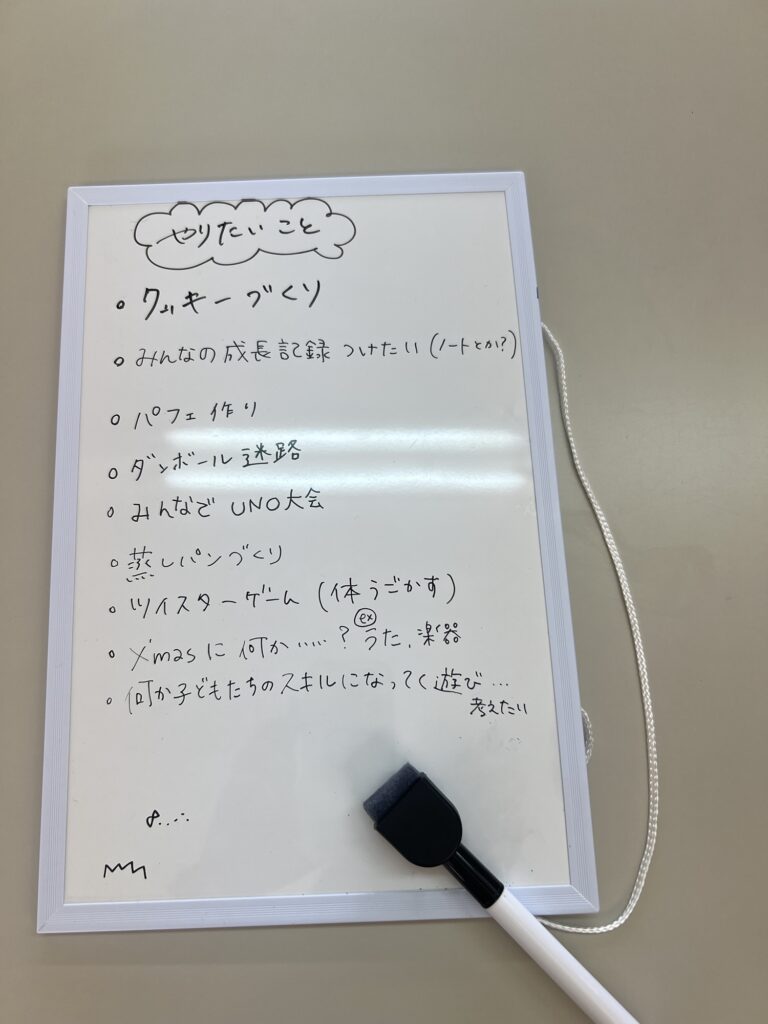 やりたいこと
。クッキーづくり
。みんなの成長記録つけたい(ノートとか?)
。パフェ作り
。ダンボール迷路
。みんなでUNO大会
。蒸しパンづくり
。ツイスターゲーム(体うごかす)
。X'masに何か……? ex うた、楽器
。何か子どもたちのスキルになってく遊び…
考えたい